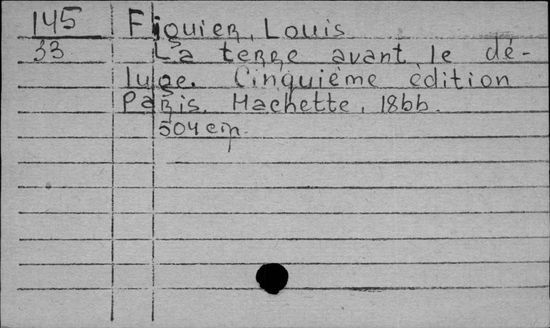 145 Figuier, Louis
33 La terre avant le dé-
luge. Cinquième édition
Paris. Hachette, 1866.
504 стр.